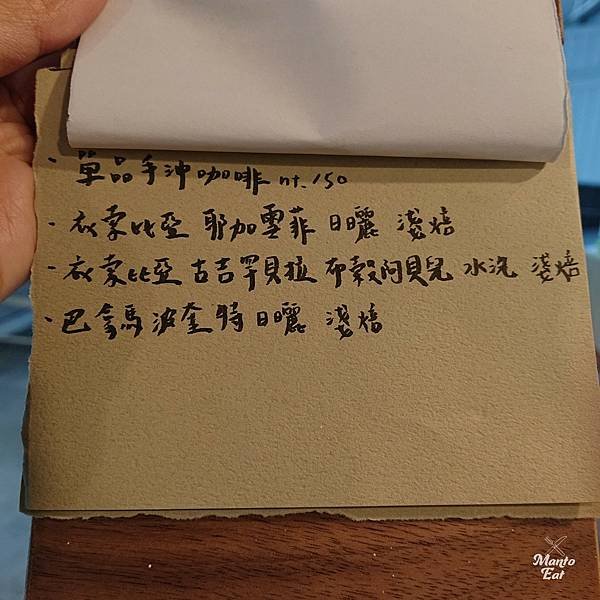 · 單品手沖咖啡 nt.150
· 衣索比亞 耶加雪菲 日曬 淺焙
· 衣索比亞 古吉罕貝拉 布穀阿貝兒 水洗 淺焙
· 巴拿馬 波奎特 日曬 淺焙
Manto
Eat